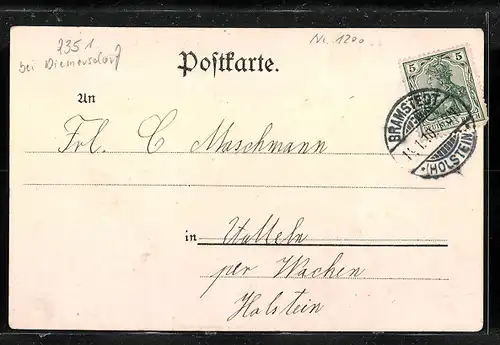 7351
bei Diemersdorf
No. 1200
Postkarte.
5 5
BRAMSTEDT
(HOLSTEIN)
An
Frl. C Maschmann
in
per Wacken
Holstein